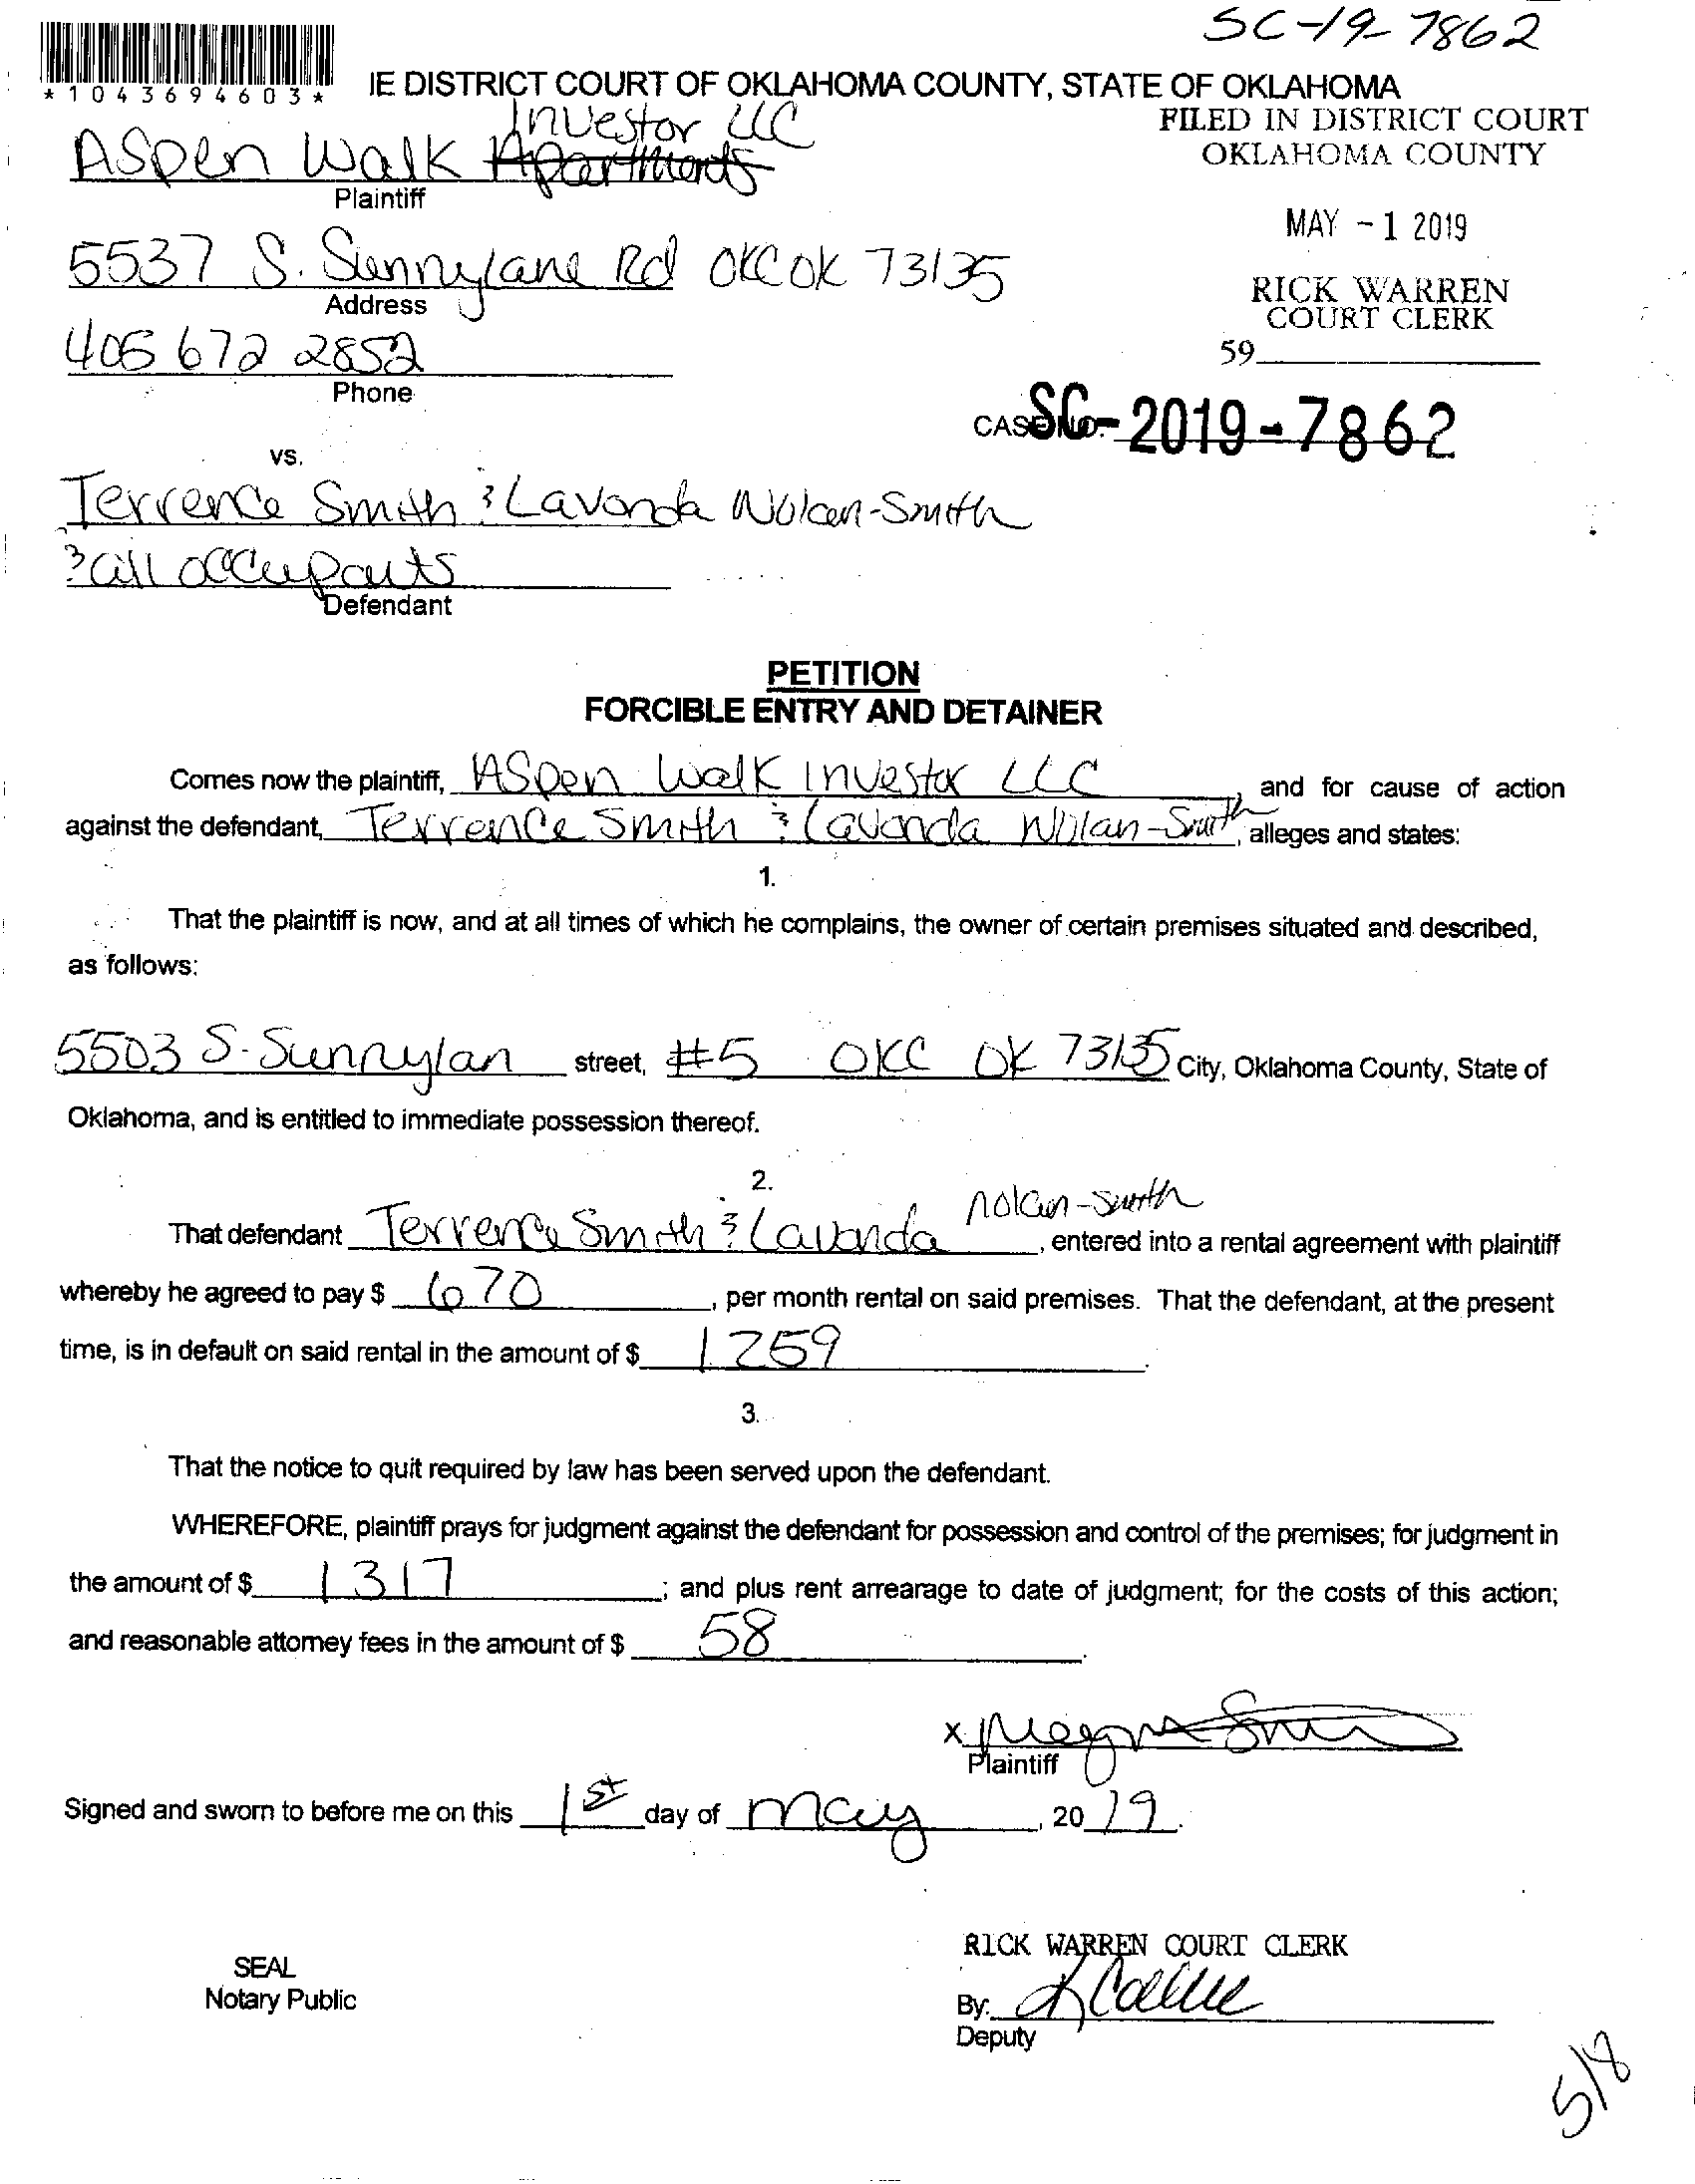 SC-19-7862
*1043694603*
IE DISTRICT COURT OF OKLAHOMA COUNTY, STATE OF OKLAHOMA
FILED IN DISTRICT COURT
OKLAHOMA COUNTY
Investor LLC
Aspen Walk Apartments
Plaintiff
MAY - 1 2019
5537 S. Sunnylane Rd OKC OK 73135
Address
RICK WARREN
COURT CLERK
405 672 2852
59
Phone
CASE NO. SC-2019-7862
vs.
Terrence Smith & Lavonda Nolan-Smith
& all occupants
Defendant
PETITION
FORCIBLE ENTRY AND DETAINER
Comes now the plaintiff, Aspen Walk Investor LLC, and for cause of action
against the defendant, Terrence Smith & Lavonda Nolan-Smith, alleges and states:
1.
That the plaintiff is now, and at all times of which he complains, the owner of certain premises situated and described,
as follows:
5503 S. Sunnylan street, #5 OKC OK 73135 City, Oklahoma County, State of
Oklahoma, and is entitled to immediate possession thereof.
2.
That defendant Terrence Smith & Lavonda Nolan-Smith, entered into a rental agreement with plaintiff
whereby he agreed to pay $ 670, per month rental on said premises. That the defendant, at the present
time, is in default on said rental in the amount of $ 1259.
3.
That the notice to quit required by law has been served upon the defendant.
WHEREFORE, plaintiff prays for judgment against the defendant for possession and control of the premises; for judgment in
the amount of $ 1317; and plus rent arrearage to date of judgment; for the costs of this action;
and reasonable attorney fees in the amount of $ 58.
x
Plaintiff
Signed and sworn to before me on this 1st day of May, 2019.
RICK WARREN COURT CLERK
SEAL
Notary Public
By:
Deputy
5/8